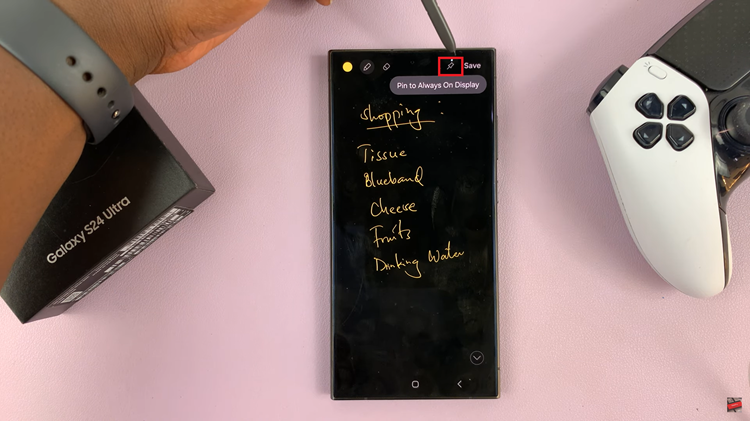 Save
Pin to Always On Display
Shopping :
Tissue
Blueband
Cheese
Fruits
Drinking Water
Galaxy S24 Ultra